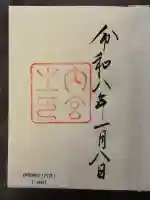 令和八年一月八日
内宮
之印